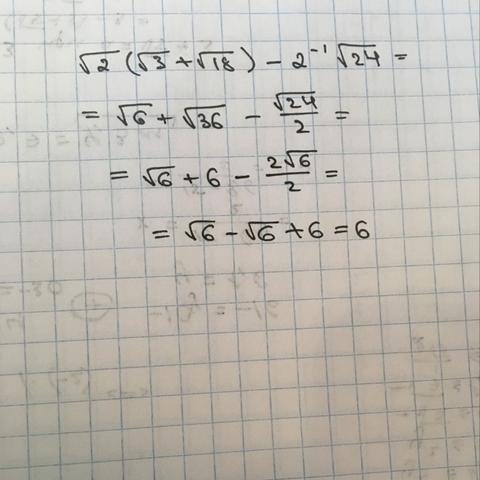 √2 (√3 + √18) - 2⁻¹ √24 =
= √6 + √36 - √24/2 =
= √6 + 6 - 2√6/2 =
= √6 - √6 + 6 = 6